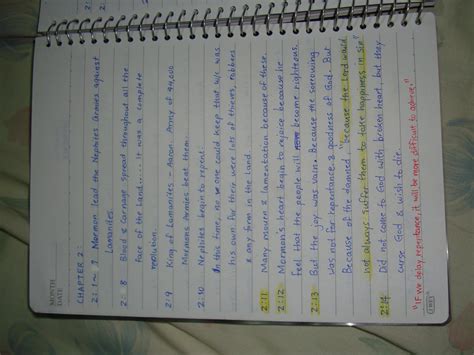 MONTH
DATE
CHAPTER 2:
2:1~ Mormon lead the Nephites Armies against
Lamanites.
2:8 Blood & Carnage spread throughout all the
face of the Land.... it was a complete
revolution.
2:9 King of Lamanites - Aaron. Army of 44,000
Mormons Armies beat them.
2:10 Nephites begin to repent.
In this time, no one could keep that w/c was
his own. For there were lot of thieves, robbers
& any form in the Land
2:11 Many mourn & lamentation because of these.
2:12 Mormon's heart begin to rejoice because he
feel that the people will become righteous.
2:13 But the joy was vain. Because the sorrowing
was not for repentance & goodness of God. But
Because of the damned, "because the Lord would
not always suffer them to take happiness in sin"
2:14 Did not come to God with broken heart, but they
curse God & wish to die.
"If we delay repentance, it will be more difficult to achieve."